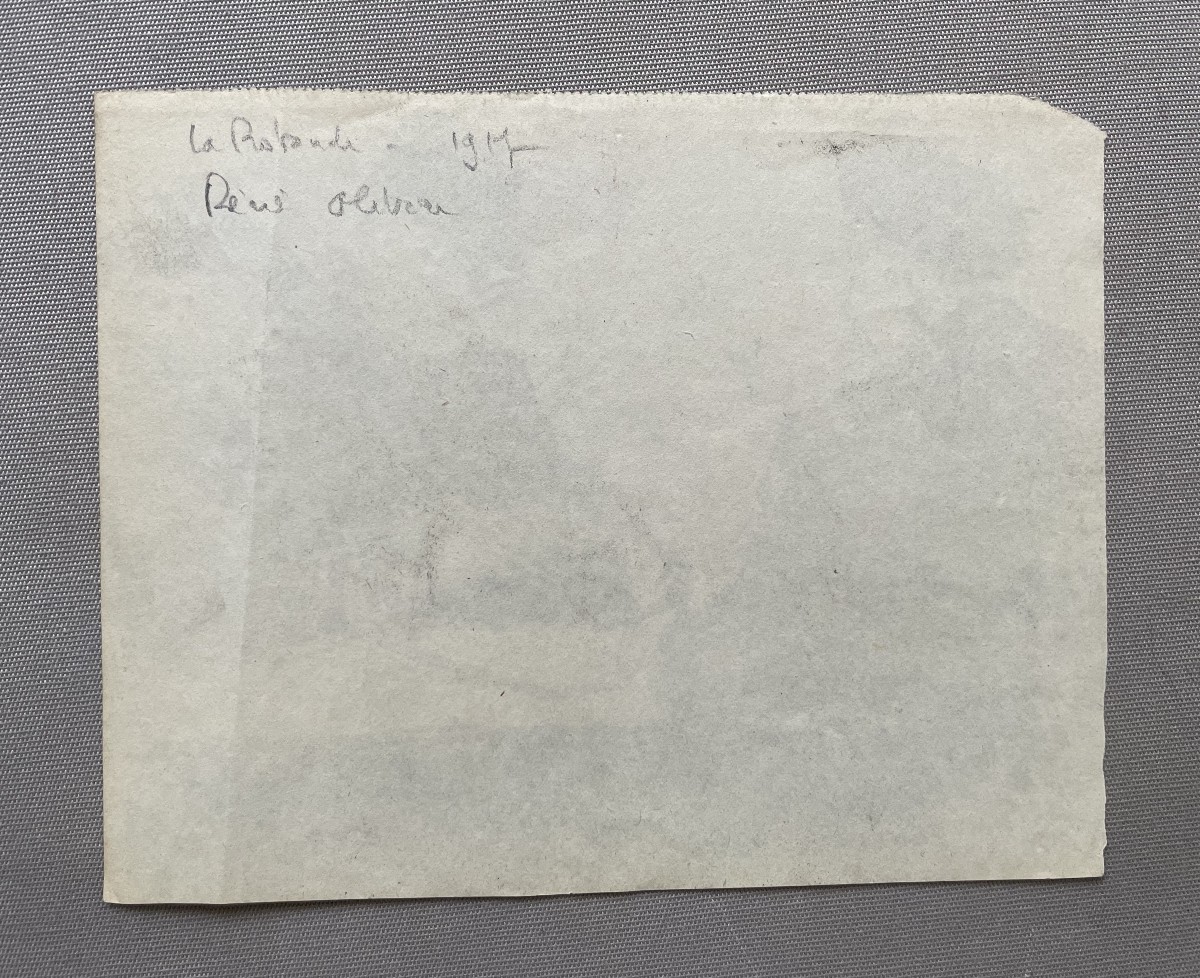 La Rotonde - 1917
René